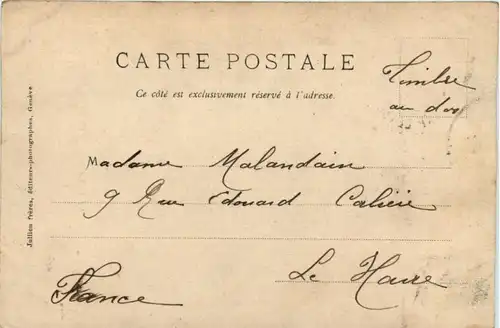 CARTE POSTALE
Ce côté est exclusivement réservé à l'adresse.
Timbre
au dos
Madame Malandain
9 Rue Edouard
Le Havre
France
Jullien frères, éditeurs-photographes, Genève